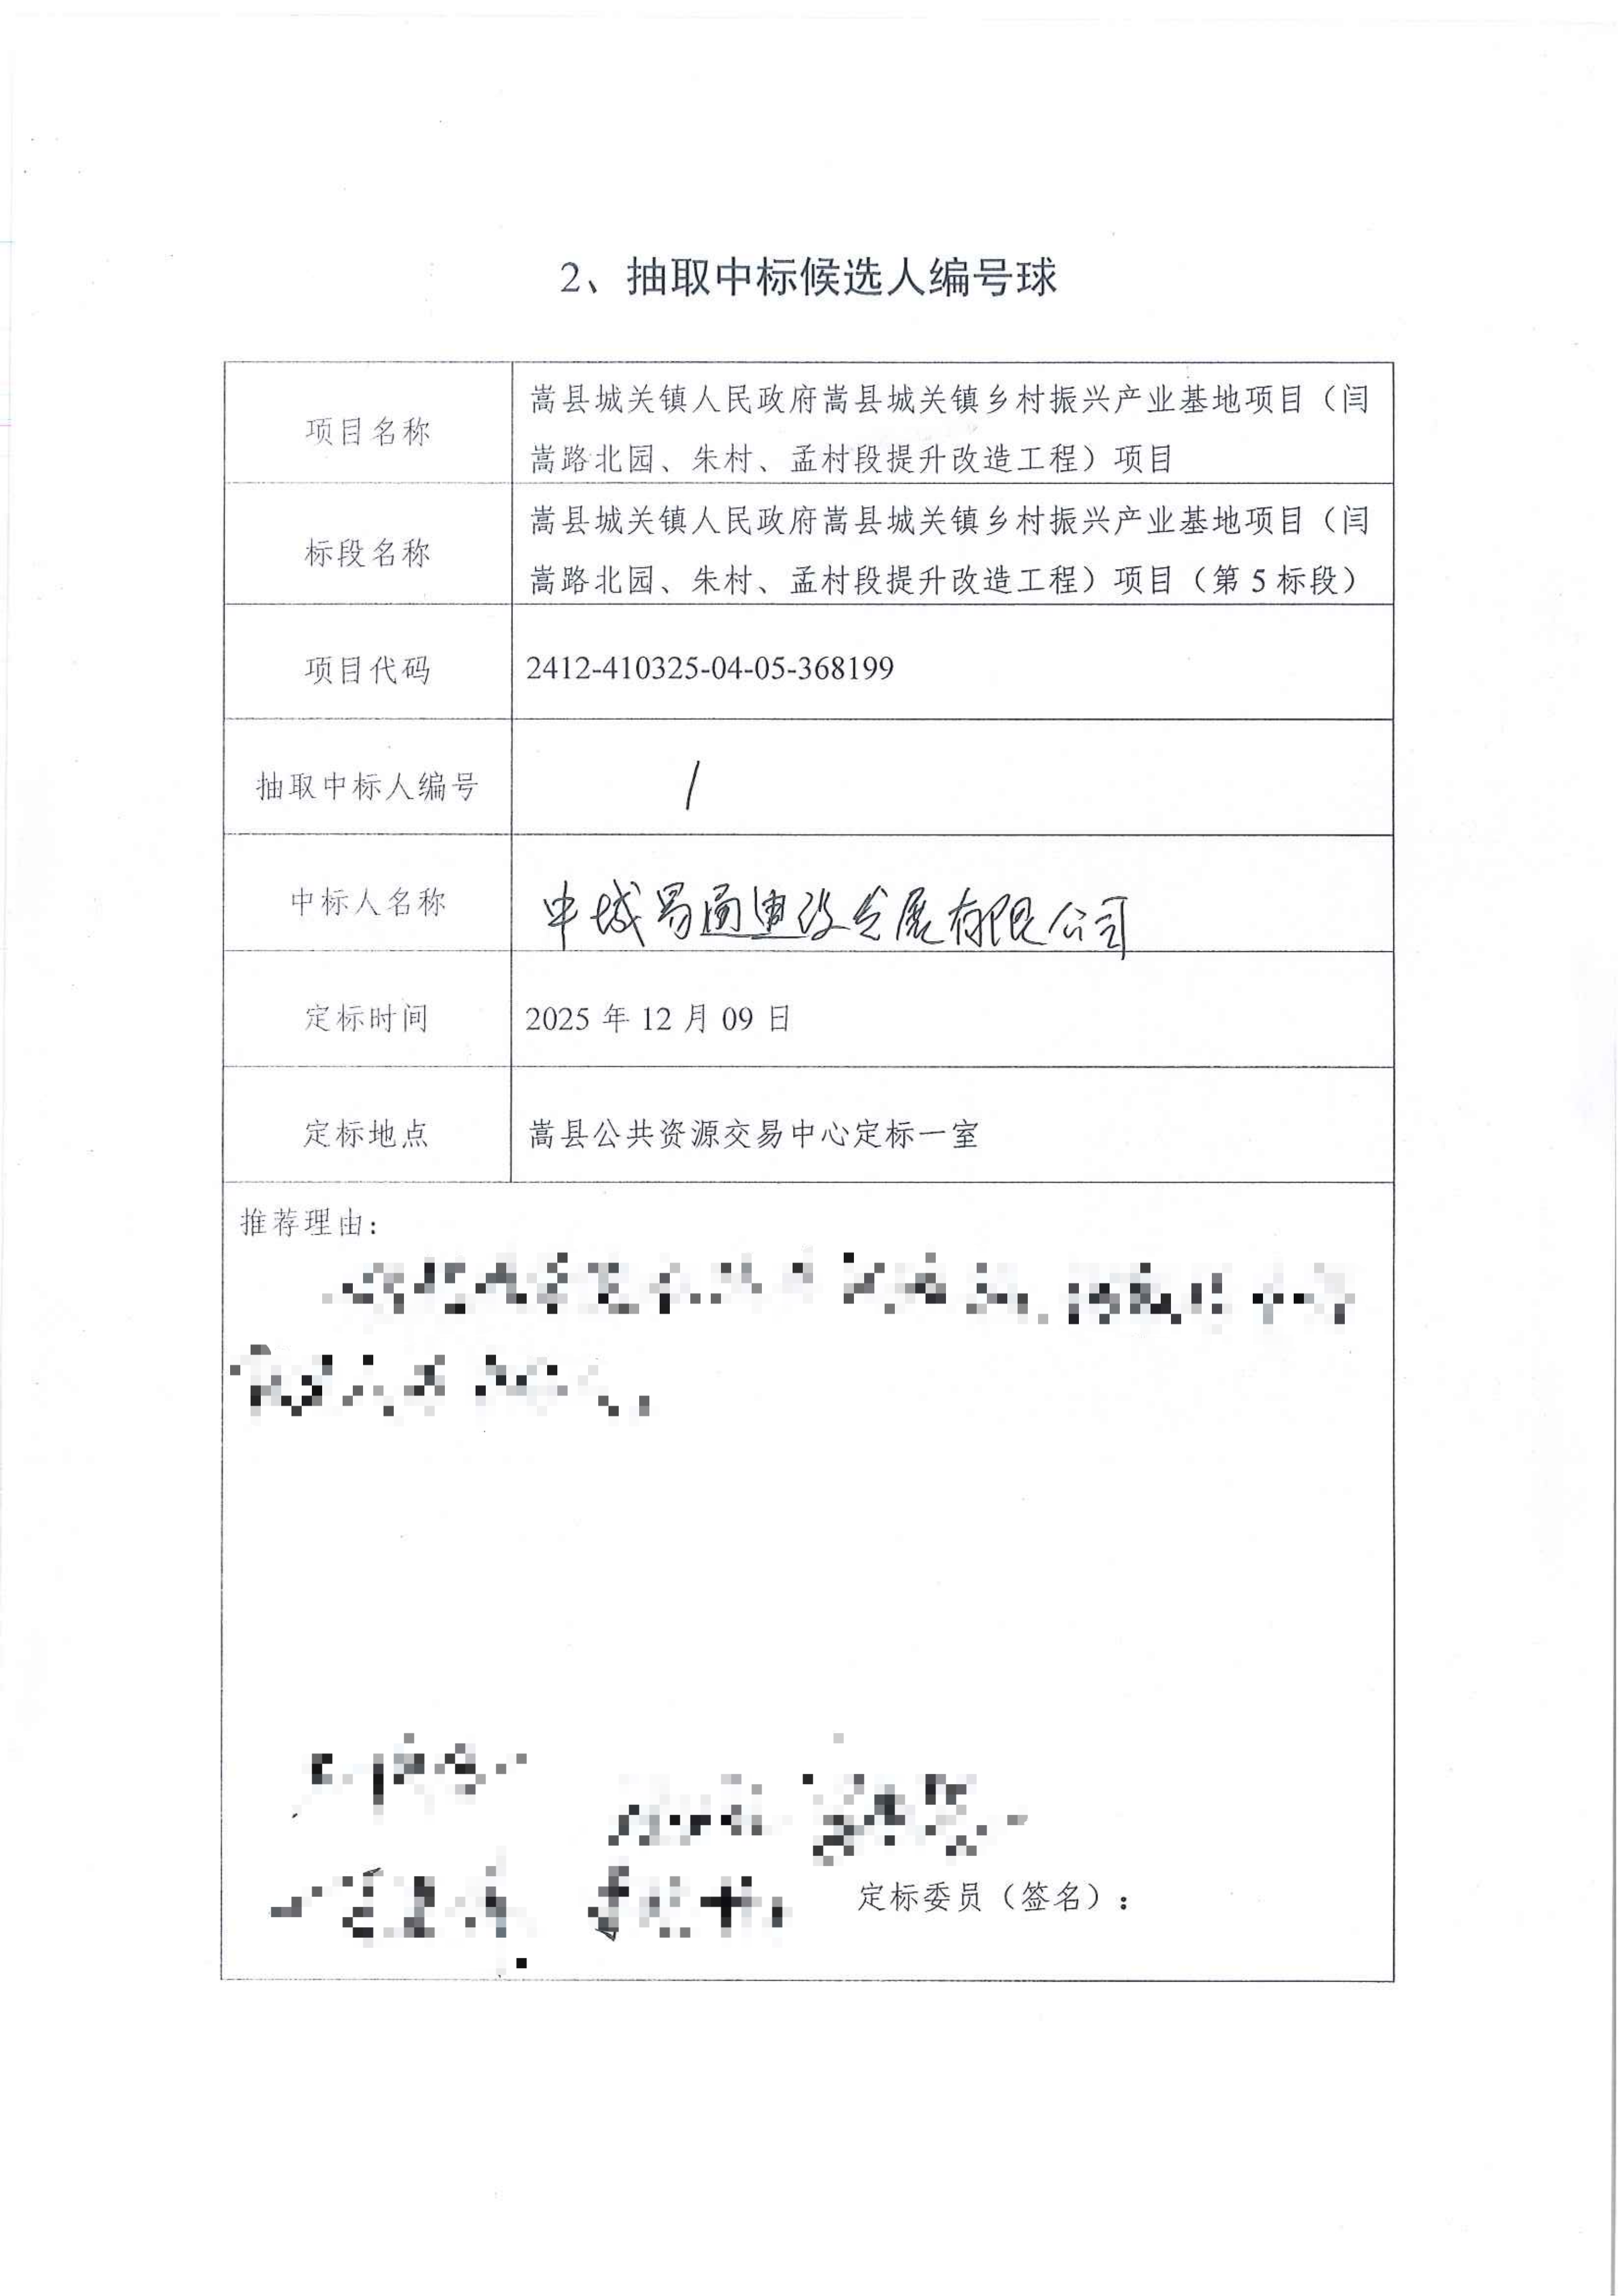 2、抽取中标候选人编号球
项目名称
嵩县城关镇人民政府嵩县城关镇乡村振兴产业基地项目（闫
嵩路北园、朱村、孟村段提升改造工程）项目
标段名称
嵩县城关镇人民政府嵩县城关镇乡村振兴产业基地项目（闫
嵩路北园、朱村、孟村段提升改造工程）项目（第 5 标段）
项目代码
2412-410325-04-05-368199
抽取中标人编号
1
中标人名称
中城易通建设发展有限公司
定标时间
2025 年 12 月 09 日
定标地点
嵩县公共资源交易中心定标一室
推荐理由：
定标委员（签名）：